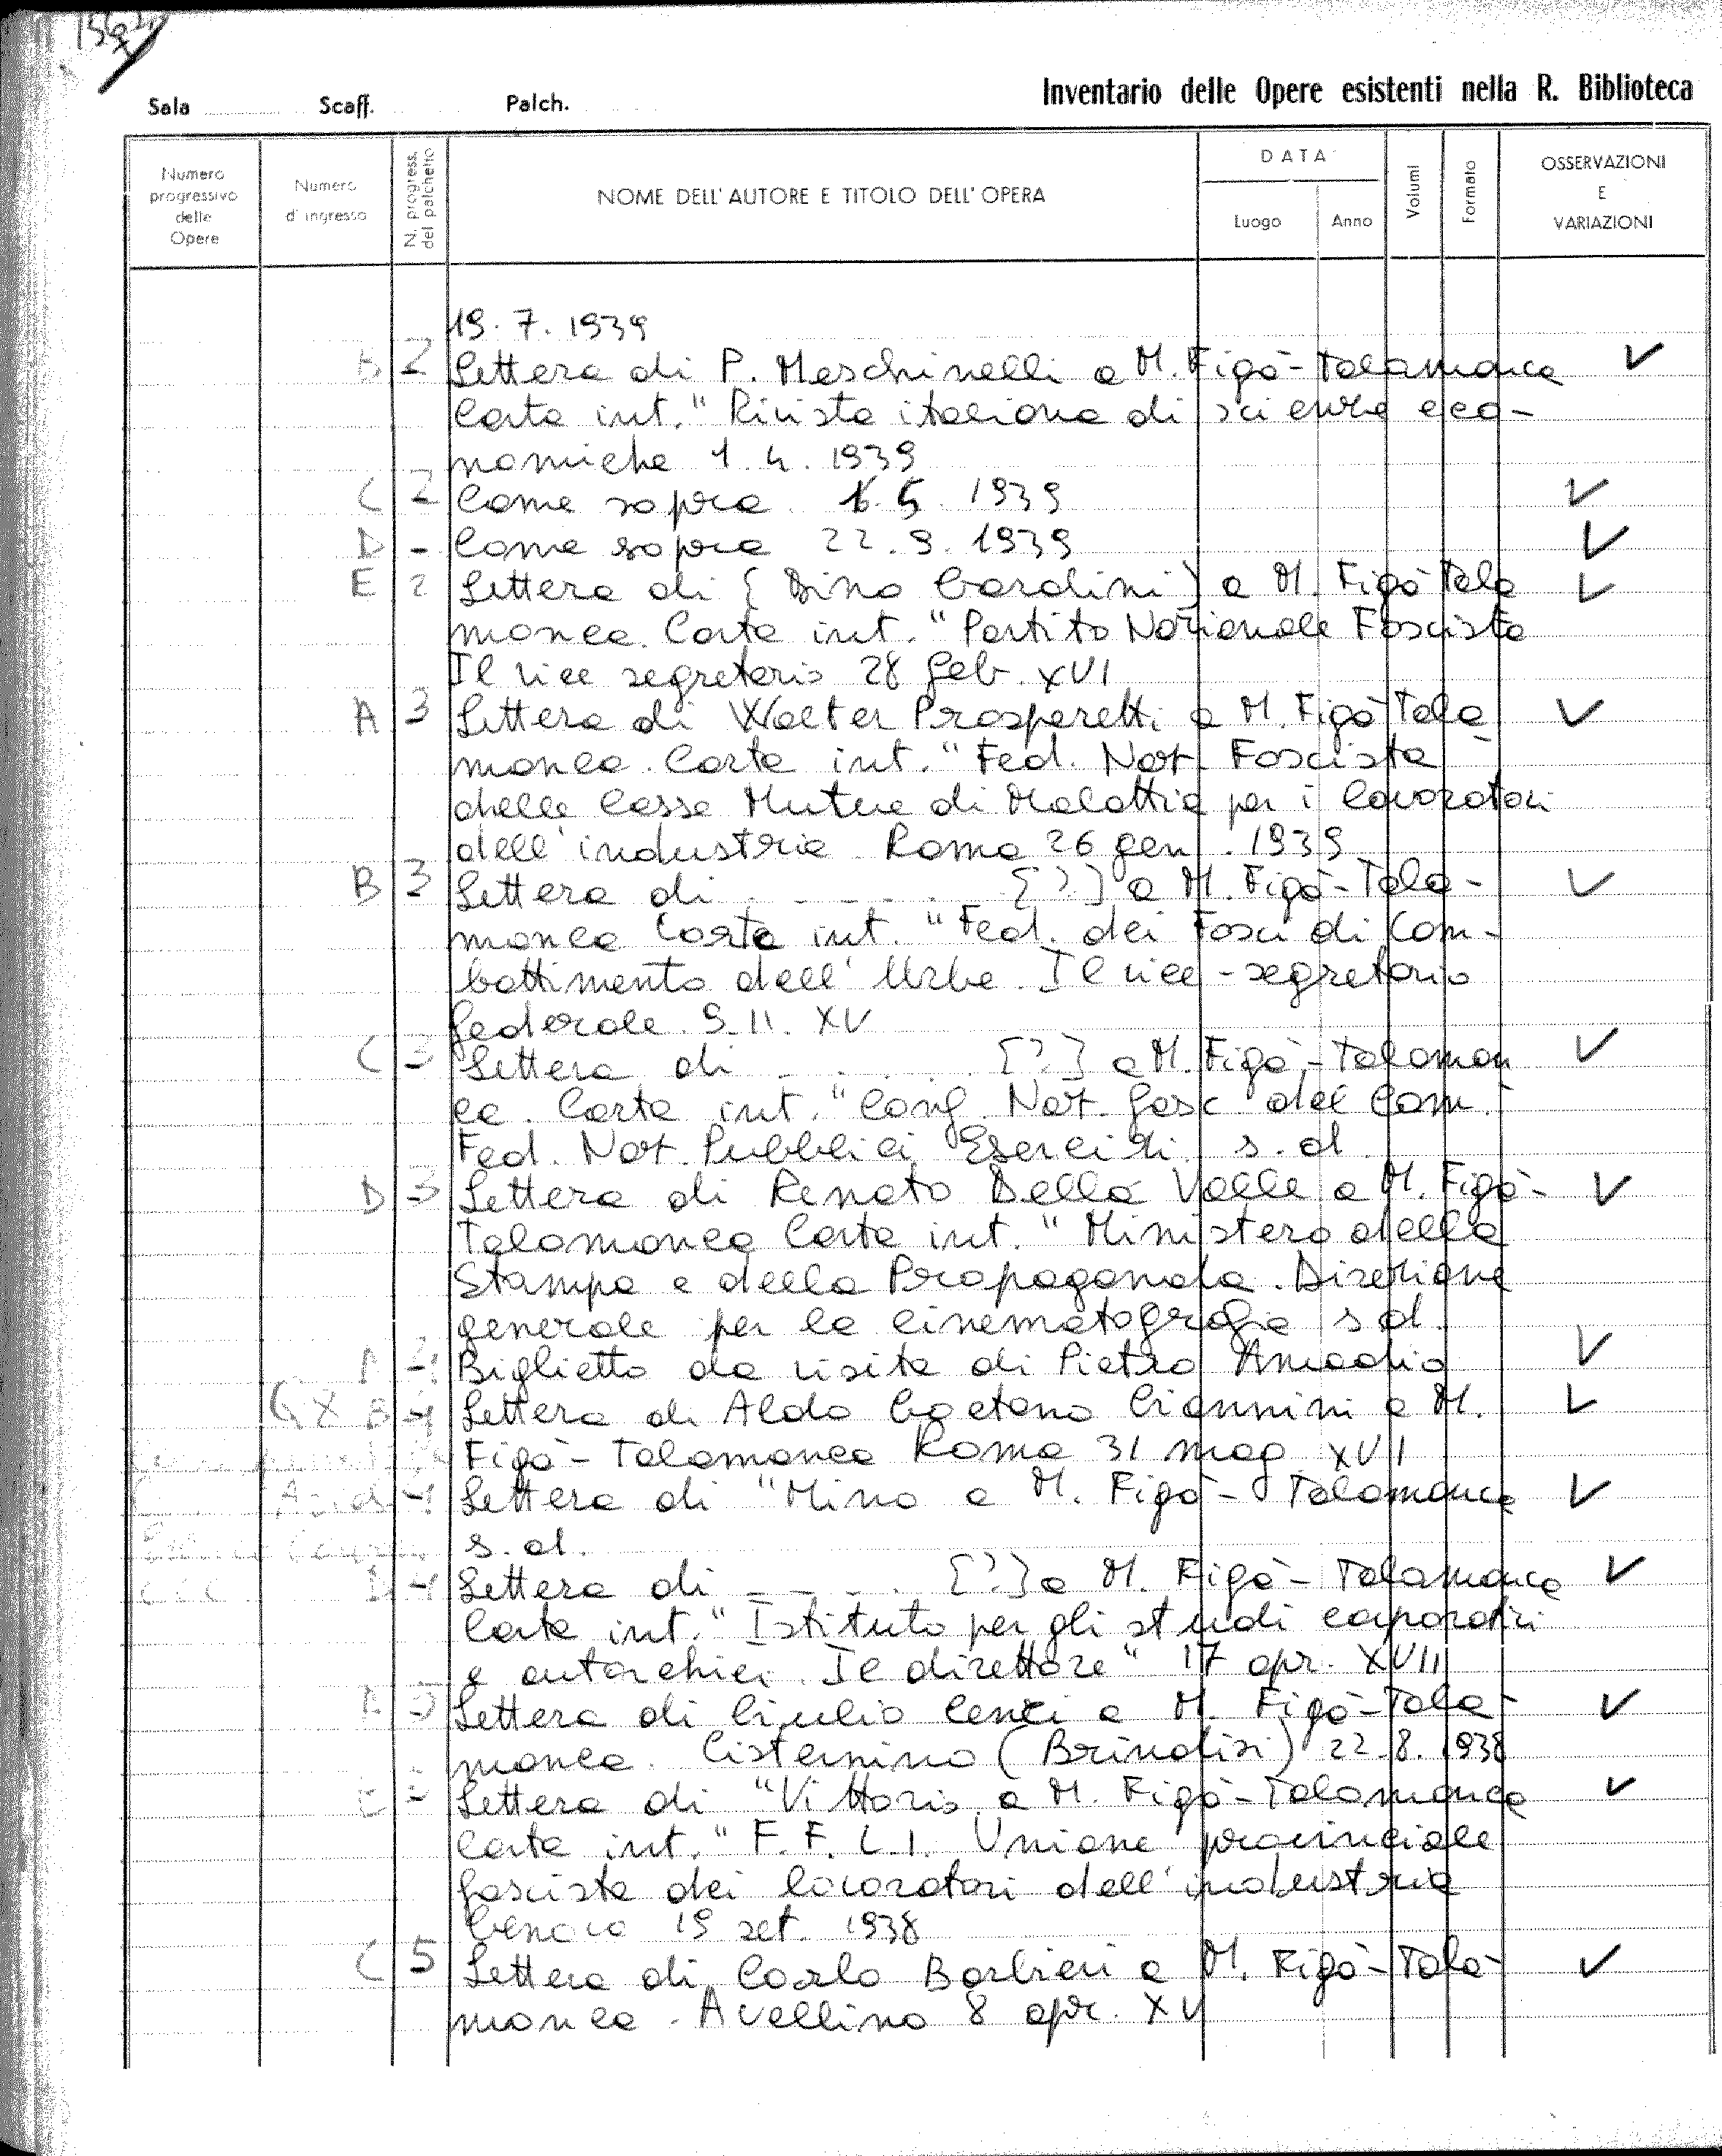 Sala Scaff. Palch. Inventario delle Opere esistenti nella R. Biblioteca
Numero progressivo delle Opere
Numero d'ingresso
N. progress. del palchetto
NOME DELL'AUTORE E TITOLO DELL'OPERA
DATA
Luogo Anno
Volumi
Formato
OSSERVAZIONI E VARIAZIONI
19.7.1939
B 2 Lettera di P. Meschinelli a M. Figà-Talamanca ✓
Carta int. "Rivista italiana di scienze eco-
nomiche 1.4.1939
C 2 Come sopra 1.5.1939 ✓
D - Come sopra 22.9.1939 ✓
E 2 Lettera di [Dino Gardini] a M. Figà Tala ✓
manca. Carta int. "Partito Nazionale Fascista
Il vice segretario 28 feb. XVI
A 3 Lettera di Walter Prosperetti a M. Figà Tala ✓
manca. Carta int. "Fed. Naz. Fascista
delle Casse Mutue di Malattia per i lavoratori
dell'industria Roma 26 gen. 1939
B 3 Lettera di . - - - . . [?] a M. Figà-Tala- ✓
manca Carta int. "Fed. dei Fasci di Com-
battimento dell'Urbe. Il vice-segretario
federale. 9.11. XV
C 3 Lettera di - . . . . . [?] a M. Figà-Talaman ✓
ca. Carta int. "Conf. Naz. fasc. del Com.
Fed. Naz. Pubblici Esercizi s.d.
D 3 Lettera di Renato Della Valle a M. Figà- ✓
Talamanca Carta int. "Ministero della
Stampa e della Propaganda. Direzione
generale per la cinematografia s.d.
A 4 Biglietto da visita di Pietro Amadio ✓
B 4 Lettera di Aldo Gaetano Giannini a M. ✓
Figà-Talamanca Roma 31 mag. XVI
4 Lettera di "Mino a M. Figà-Talamanca ✓
s.d.
D 4 Lettera di - - - . [?] a M. Figà-Talamanca ✓
Carta int. "Istituto per gli studi corporativi
e autarchici. Il direttore" 17 apr. XVII
A 5 Lettera di Giulio Cenci a M. Figà-Tala- ✓
manca. Cisternino (Brindisi) 22.8.1938
Lettera di "Vittorio a M. Figà-Talamanca ✓
Carta int. "F.F.L.I. Unione provinciale
fascista dei lavoratori dell'industria
Genova 19 set. 1938
C 5 Lettera di Carlo Barbieri a M. Figà-Tala- ✓
manca. Avellino 8 apr. XV